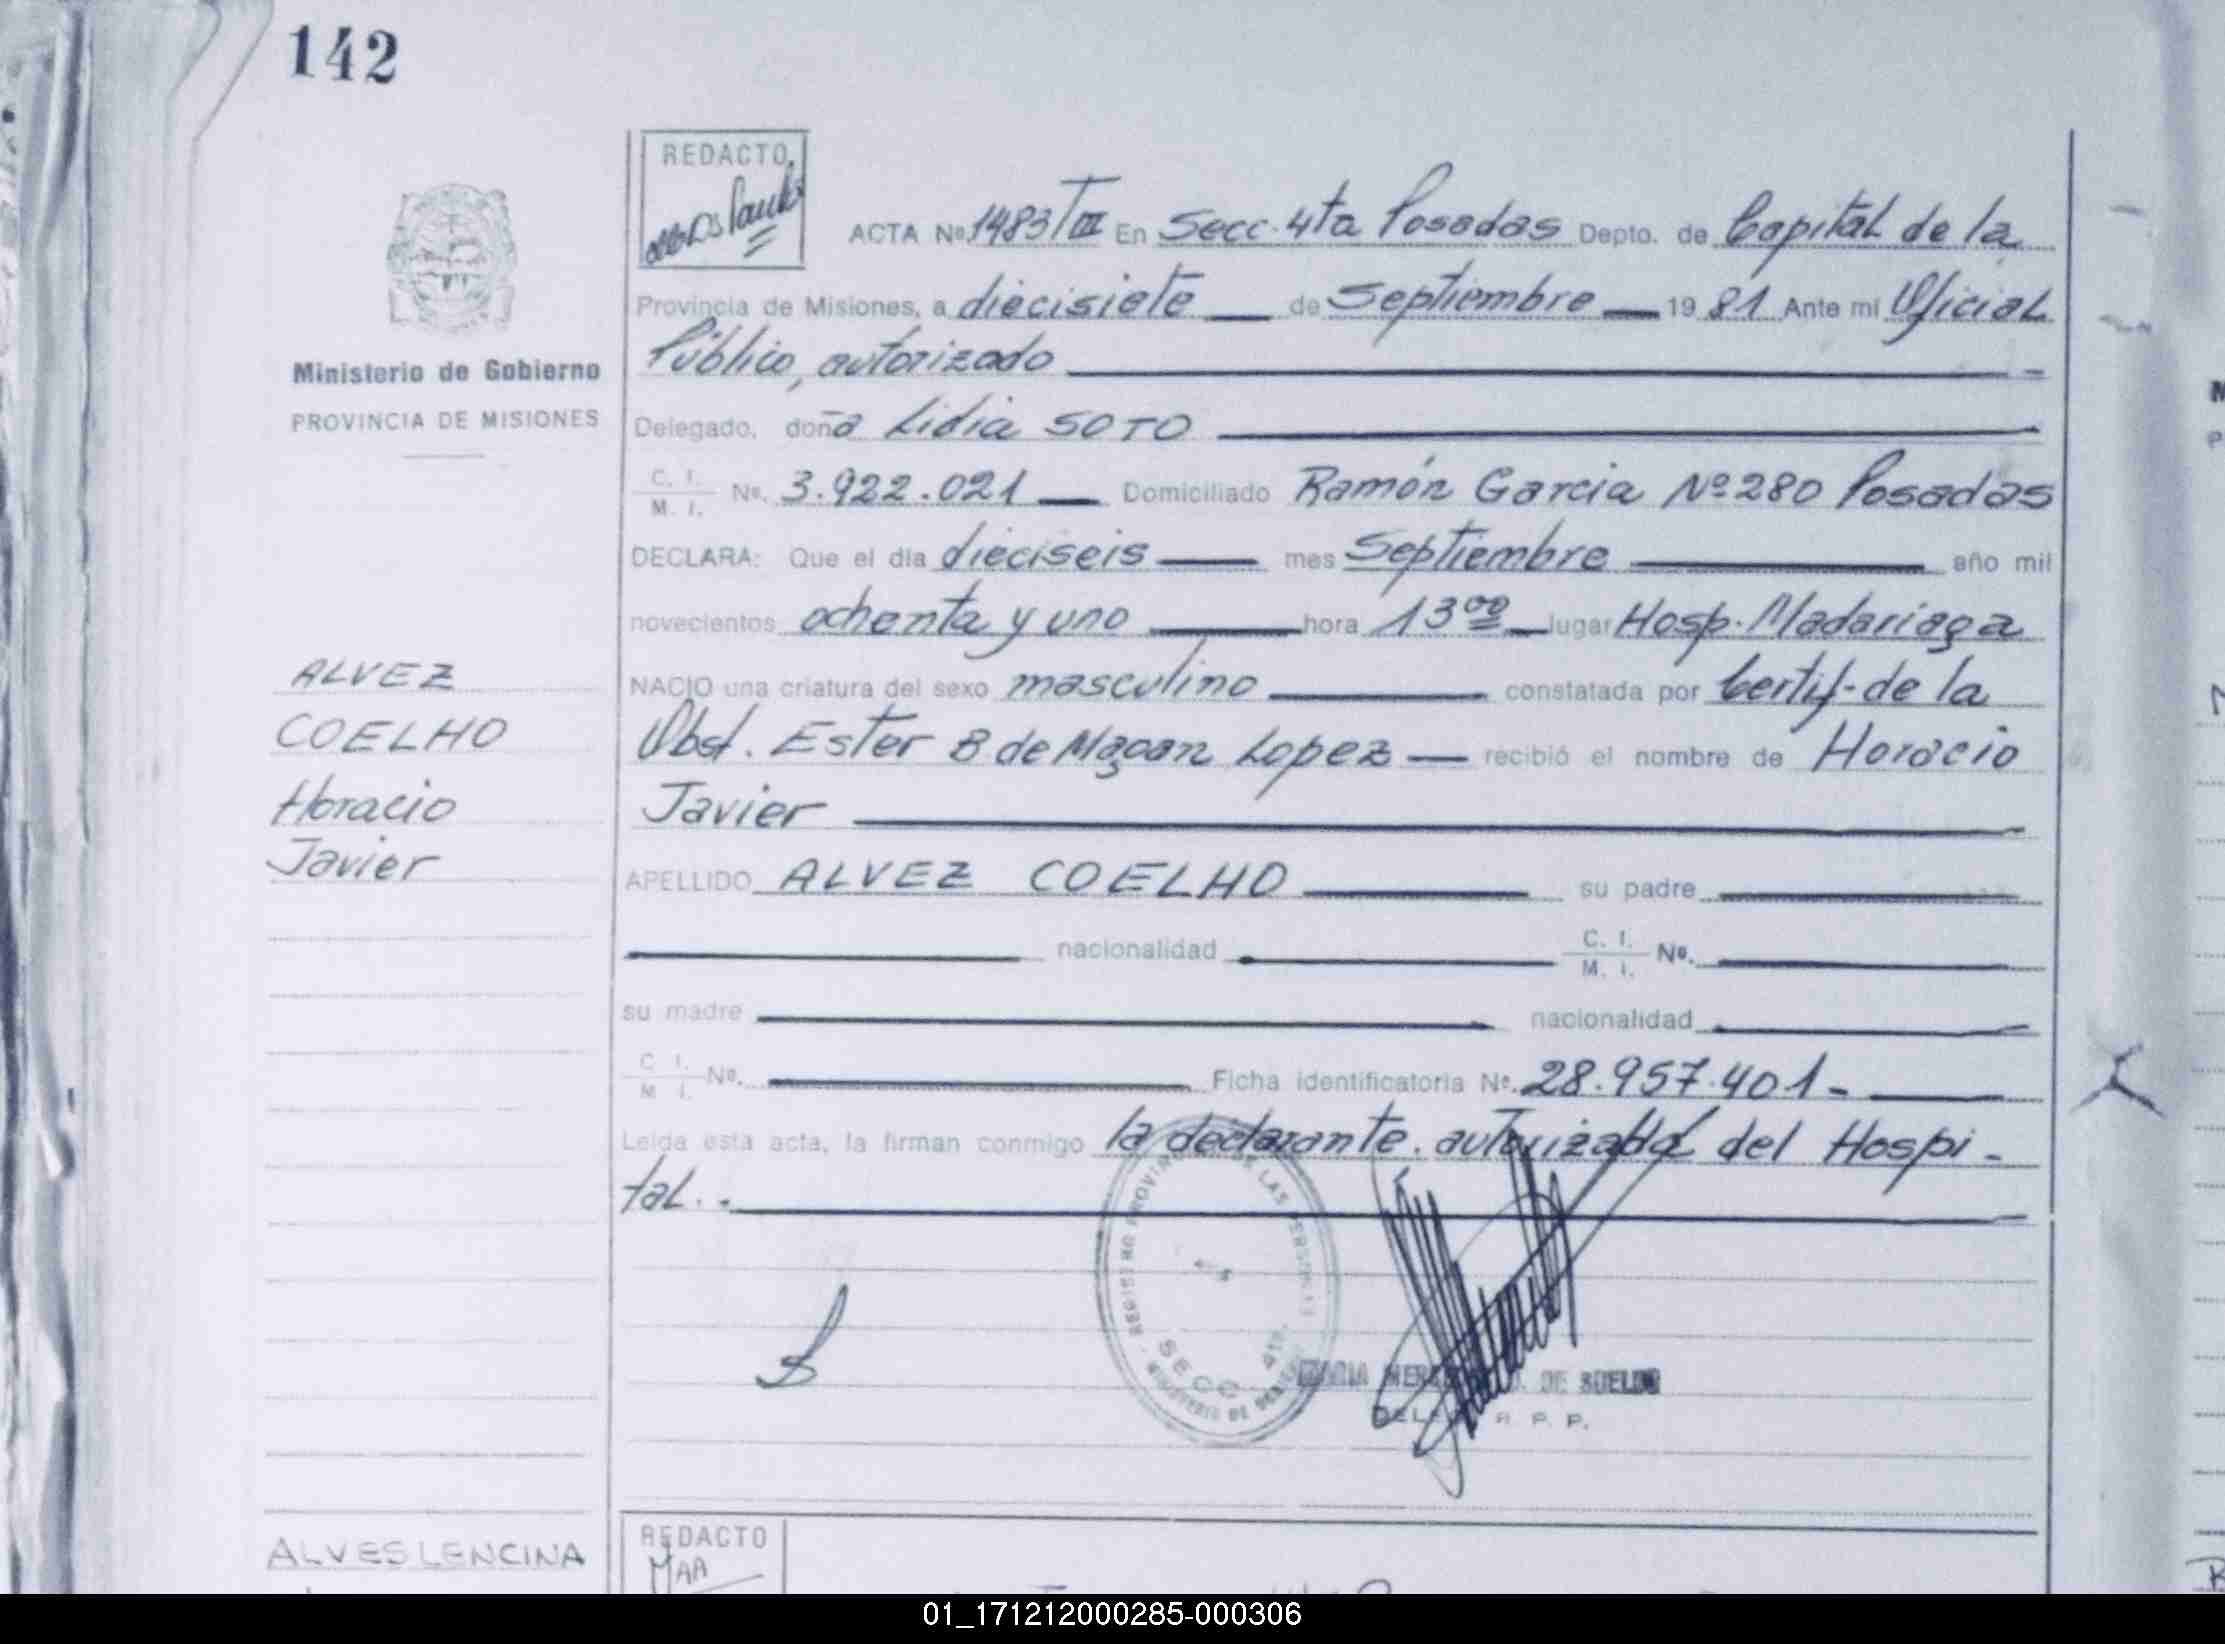 142
REDACTO
ACTA Nº 1483/III En Secc. 4ta Posadas Depto. de Capital de la
Provincia de Misiones, a diecisiete de Septiembre 1981 Ante mi Oficial
Público, autorizado
Ministerio de Gobierno
PROVINCIA DE MISIONES
Delegado, doña Lidia SOTO
C. I. / M. I. Nº. 3.922.021 Domiciliado Ramón Garcia Nº 280 Posadas
DECLARA: Que el día dieciseis mes Septiembre año mil
novecientos ochenta y uno hora 13 00 lugar Hosp. Madariaga
ALVEZ
COELHO
Horacio
Javier
NACIO una criatura del sexo masculino constatada por Certif. de la
Obst. Ester B de Lopez recibió el nombre de Horacio
Javier
APELLIDO ALVEZ COELHO su padre
nacionalidad C. I. / M. I. Nº.
su madre nacionalidad
C. I. / M. I. Nº. Ficha identificatoria Nº. 28.957.401-
Leída esta acta, la firman conmigo la declarante autorizada del Hospi-
tal.-
SECC 4ta.
DE SUELDO
R. P. P.
ALVES LENCINA
REDACTO
MAA
01_171212000285-000306